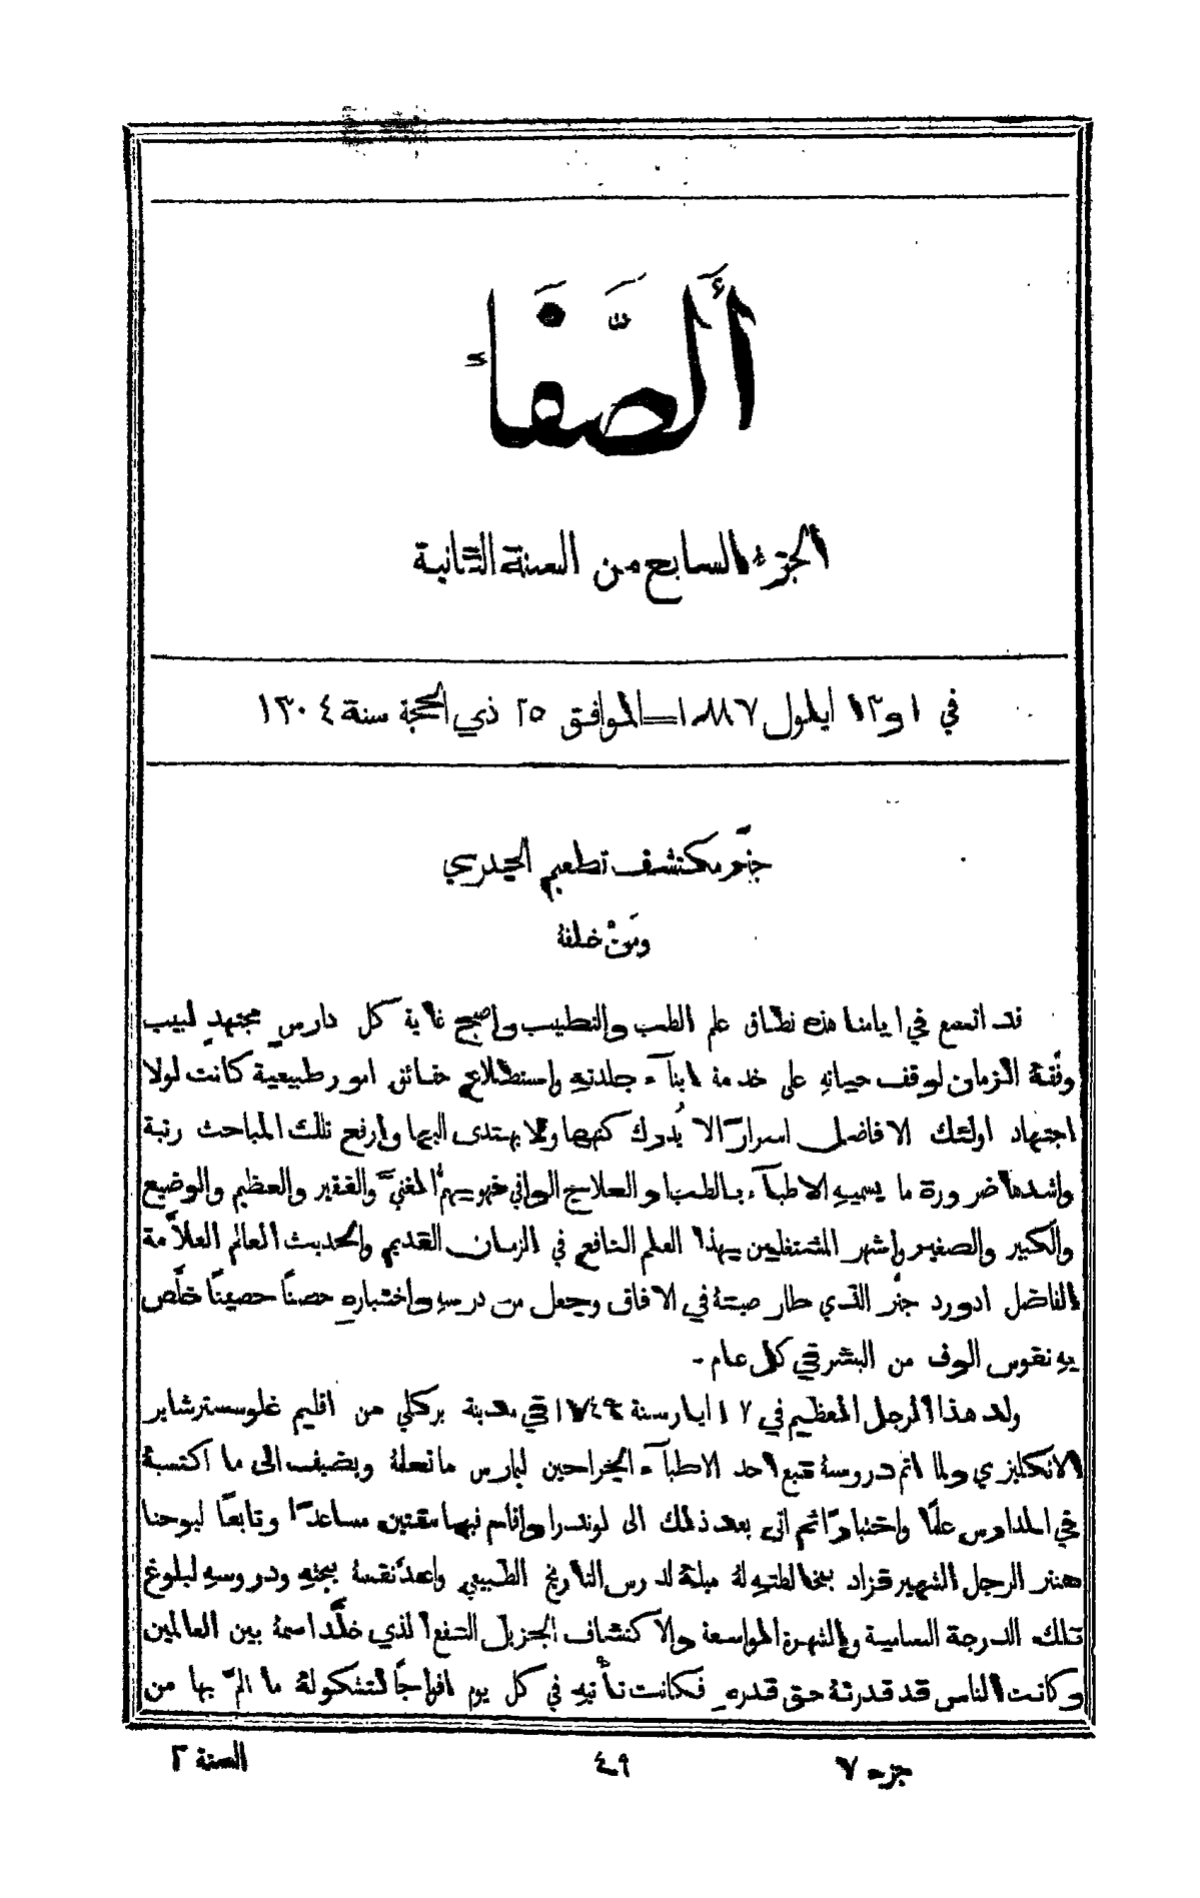 أَلصَّفَاءِ
الجزءُ السابع من السنة الثانية
في ١ و١٣ ايلول ١٨٨٧ــالموافق ٢٥ ذي الحجة سنة ١٣٠٤
جنَر مكتشف تطعيم الجدري
ومَنْ خلفهُ
قد اتسع في ايامنا هذه نطاق علم الطب والتطبيب واصبح غاية كل دارسٍ مجتهدٍ لبيب
وفَّقهُ الزمان لوقف حياتهِ على خدمة ابنآء جلدتهِ واستطلاع حقائق امور طبيعية كانت لولا
اجتهاد اولئك الافاضل اسرارًا لا يُدرك كنهها ولا يهتدى اليها وارفع تلك المباحث رتبة
واشدها ضرورة ما يسميهِ الاطبآء بالطب او العلاج الواقي فهو يهمُّ الغنيَّ والفقير والعظيم والوضيع
والكبير والصغير واشهر المشتغلين بهذا العلم النافع في الزمان القديم والحديث العالم العلاَّمة
الفاضل ادورد جنَر الذي طار صيتهُ في الافاق وجعل من درسهِ واختبارهِ حصنًا حصينًا خلَّص
بهِ نفوس الوف من البشر في كل عام ـ
ولد هذا الرجل العظيم في ١٧ ايار سنة ١٧٤٩ في مدينة بركلي من اقليم غلوسسترشاير
الانكليزي ولما اتم دروسهُ تبع احد الاطبآء الجراحين ليمارس ما تعلمهُ ويضيف الى ما اكتسبهُ
في المدارس علمًا واختبارًا ثم اتى بعد ذلك الى لوندرا واقام فيها سنتين مساعدًا وتابعًا ليوحنا
هنتر الرجل الشهير فزاد بمخالطتهِ لهُ ميلهُ لدرس التاريخ الطبيعي واعدَّ نفسهُ ببحثهِ ودروسهِ لبلوغ
تلك الدرجة السامية والشهرة الواسعة والاكتشاف الجزيل النفع الذي خلَّد اسمهُ بين العالمين
وكانت الناس قد قدرتهُ حق قدرهِ فكانت تأْتيهِ في كل يوم افواجًا لتشكو لهُ ما المَّ بها من
جزء ٧
٤٩
السنة ٢